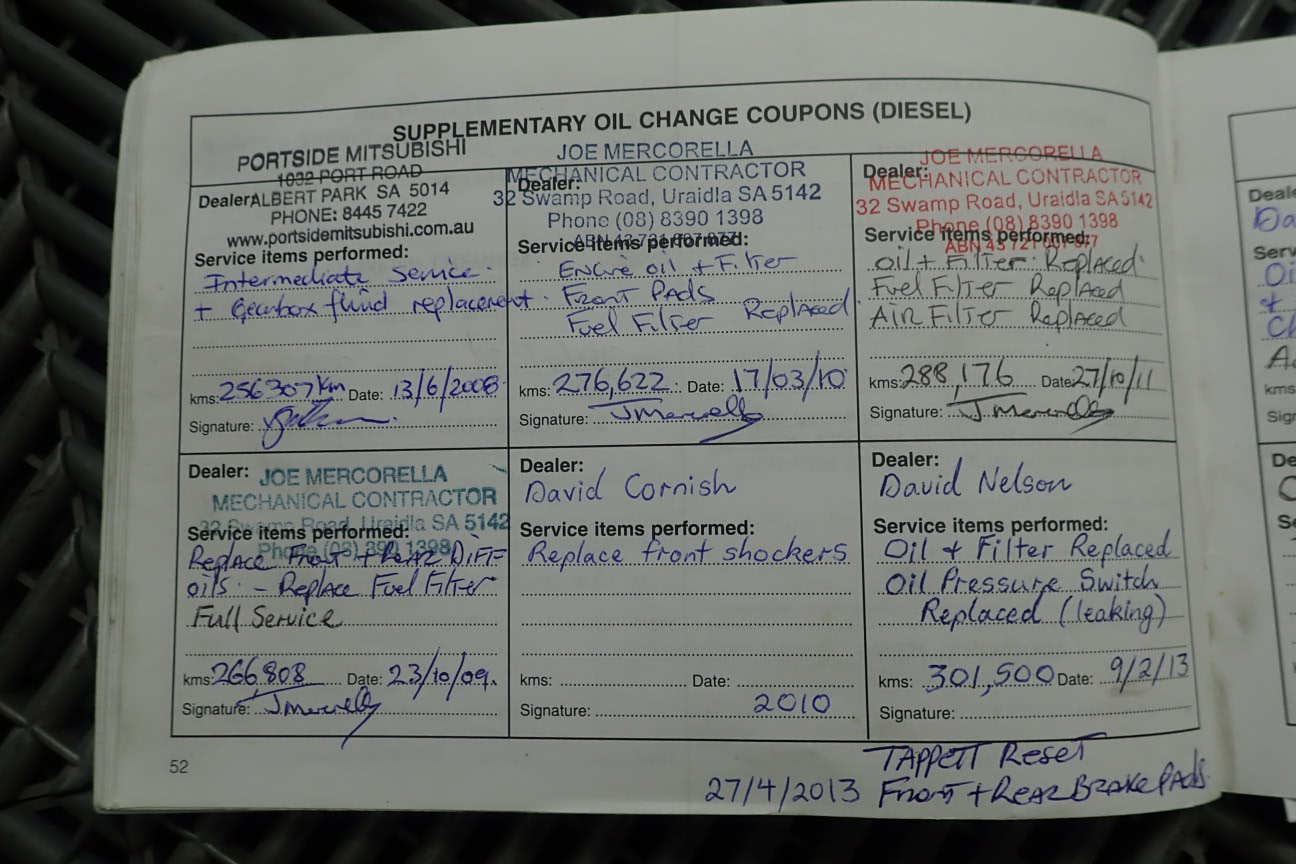 SUPPLEMENTARY OIL CHANGE COUPONS (DIESEL)
PORTSIDE MITSUBISHI
1032 PORT ROAD
Dealer ALBERT PARK SA 5014
PHONE: 8445 7422
www.portsidemitsubishi.com.au
Service items performed:
Intermediate service.
+ Gearbox fluid replacement.
kms: 256307km Date: 13/6/2008
Signature:
JOE MERCORELLA
MECHANICAL CONTRACTOR
Dealer:
32 Swamp Road, Uraidla SA 5142
Phone (08) 8390 1398
Service items performed:
Engine oil + Filter
Front Pads
Fuel Filter Replaced
kms: 276,622 Date: 17/03/10
Signature:
JOE MERCORELLA
Dealer:
MECHANICAL CONTRACTOR
32 Swamp Road, Uraidla SA 5142
Phone (08) 8390 1398
Service items performed:
ABN
oil + Filter Replaced
Fuel Filter Replaced
Air Filter Replaced
kms: 288,176 Date 27/10/11
Signature:
Dealer: JOE MERCORELLA
MECHANICAL CONTRACTOR
32 Swamp Road, Uraidla SA 5142
Service items performed:
Phone (08) 390 1398
Replace Front + Rear Diff
oils - Replace Fuel Filter
Full Service
kms: 266,808 Date: 23/10/09.
Signature:
Dealer:
David Cornish
Service items performed:
Replace front shockers
kms: Date:
Signature: 2010
Dealer:
David Nelson
Service items performed:
Oil + Filter Replaced
Oil Pressure Switch
Replaced (leaking)
kms: 301,500 Date: 9/2/13
Signature:
52
TAPPETT Reset
27/4/2013 Front + Rear Brake Pads.